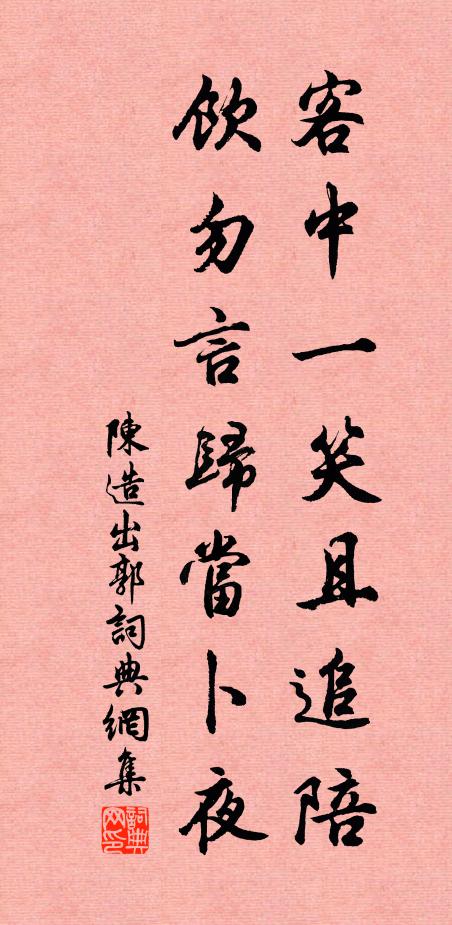 客中一笑且追陪
飲勿言歸當卜夜
陳造出郭詞典網集
詞典網印